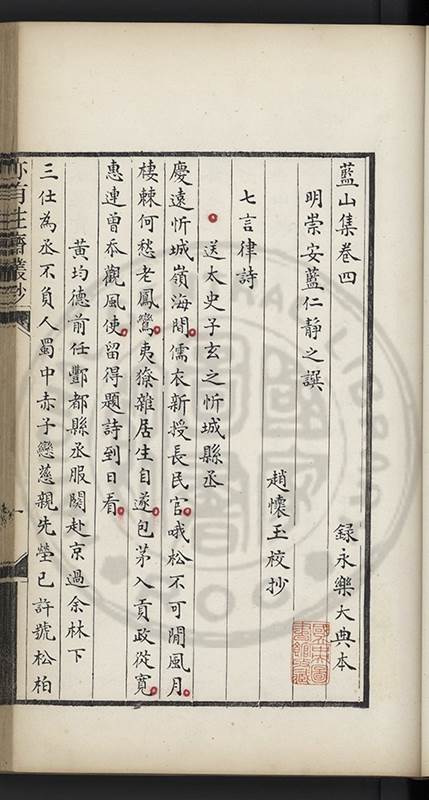 藍山集卷四 錄永樂大典本
明崇安藍仁靜之譔
趙懷玉校抄
七言律詩
送太史子玄之忻城縣丞
慶遠忻城嶺海間儒衣新授長民官哦松不可閒風月
棲棘何愁老鳳鸞夷獠雜居生自遂包茅入貢政從寬
惠連曾忝觀風使留得題詩到日看
黃均德前任酆都縣丞服闋赴京過余林下
三仕為丞不負人蜀中赤子戀慈親先塋已許號松柏
亦有生齋叢抄